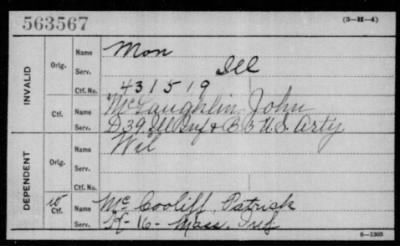 563567
(3-H-4)
INVALID
Orig.
Name
Mon
Serv.
Ill
Ctf. No.
431519
Ctf.
Name
McLaughlin, John
Serv.
D 39 Ill Inf & B 5 U.S. Arty
DEPENDENT
Orig.
Name
Wel
Serv.
Ctf.
Name
Mc Cooliff, Patrick
Serv.
16 - Mass. Inf
6-1303